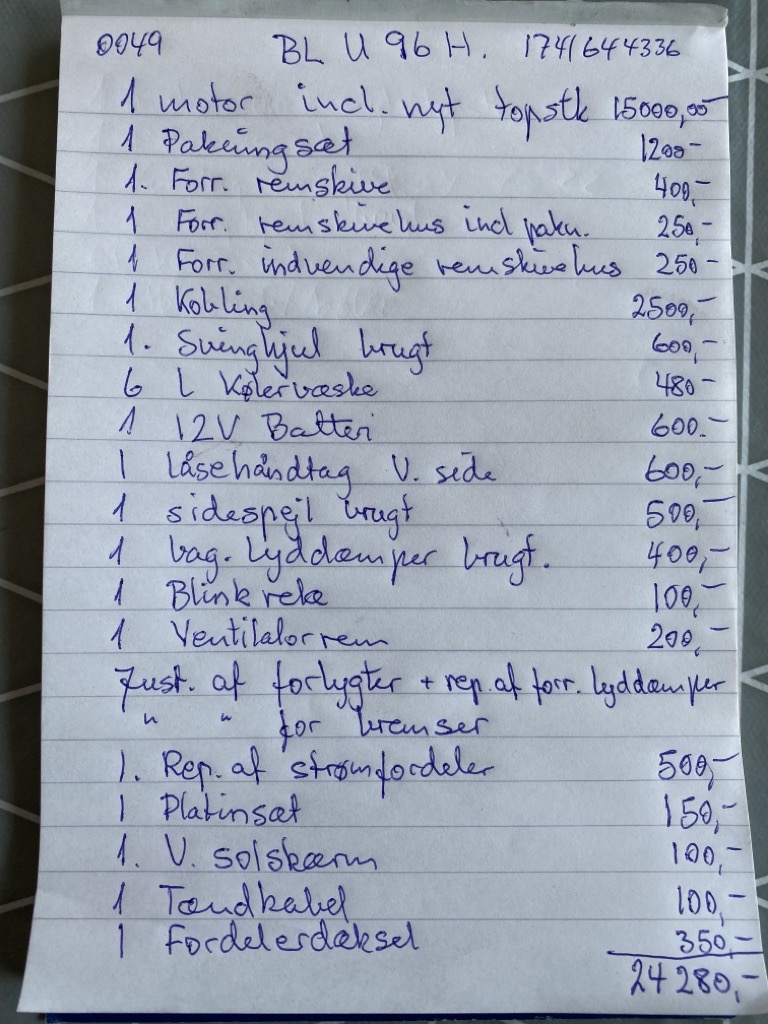 0049 BL U 96 H. 1741644336
1 motor incl. nyt topstk 15000,00
1 Pakningsæt 1200-
1. Forr. remskive 400,-
1 Forr. remskivehus incl pakn. 250,-
1 Forr. indvendige remskivehus 250-
1 Kobling 2500,-
1. Svinghjul brugt 600,-
6 L Kølervæske 480-
1 12V Batteri 600.-
1 låsehåndtag V. side 600,-
1 sidespejl brugt 500,-
1 bag. lyddæmper brugt. 400,-
1 Blink relæ 100,-
1 Ventilatorrem 200,-
Just. af forlygter + rep. af forr. lyddæmper
" " for bremser
1. Rep. af strømfordeler 500,-
1 Platinsæt 150,-
1. V. solskærm 100,-
1 Tændkabel 100,-
1 Fordelerdæksel 350,-
24280,-